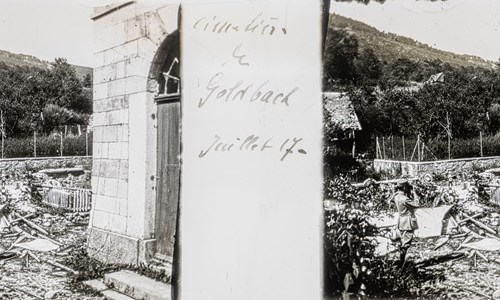 Cimetière
de
Goldbach
Juillet 17-